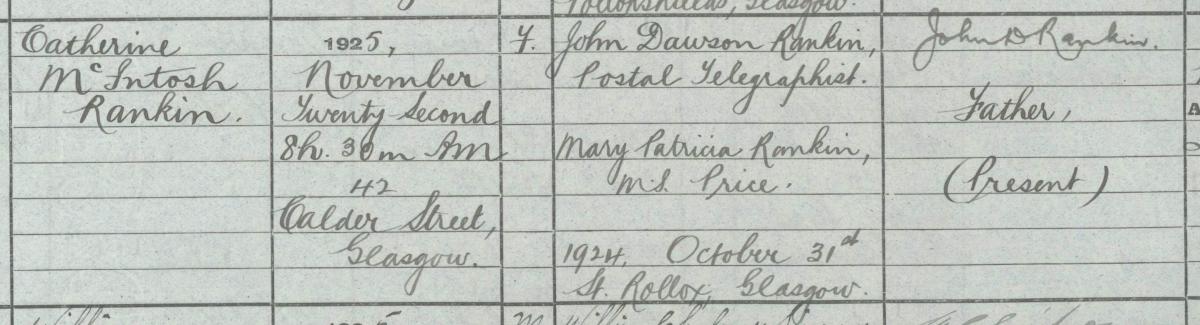 Pollokshields, Glasgow.
Catherine
McIntosh
Rankin.
1925,
November
Twenty Second
8h. 30m AM
42
Calder Street,
Glasgow.
F.
John Dawson Rankin,
Postal Telegraphist.
Mary Patricia Rankin,
M.S. Price.
1924, October 31st
St. Rollox, Glasgow.
John D Rankin.
Father,
(Present)
1925
M